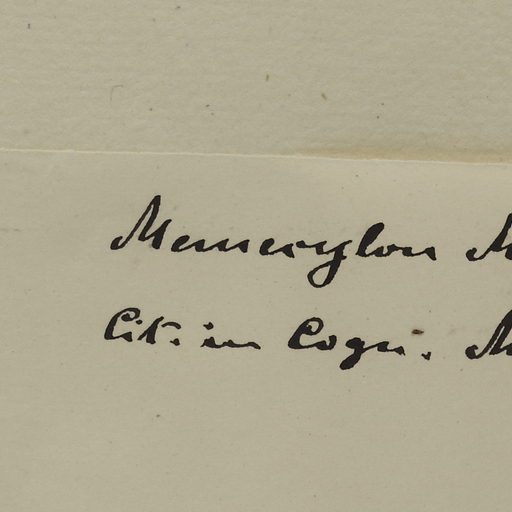 Memecylon M
Cit. in Cogn. M